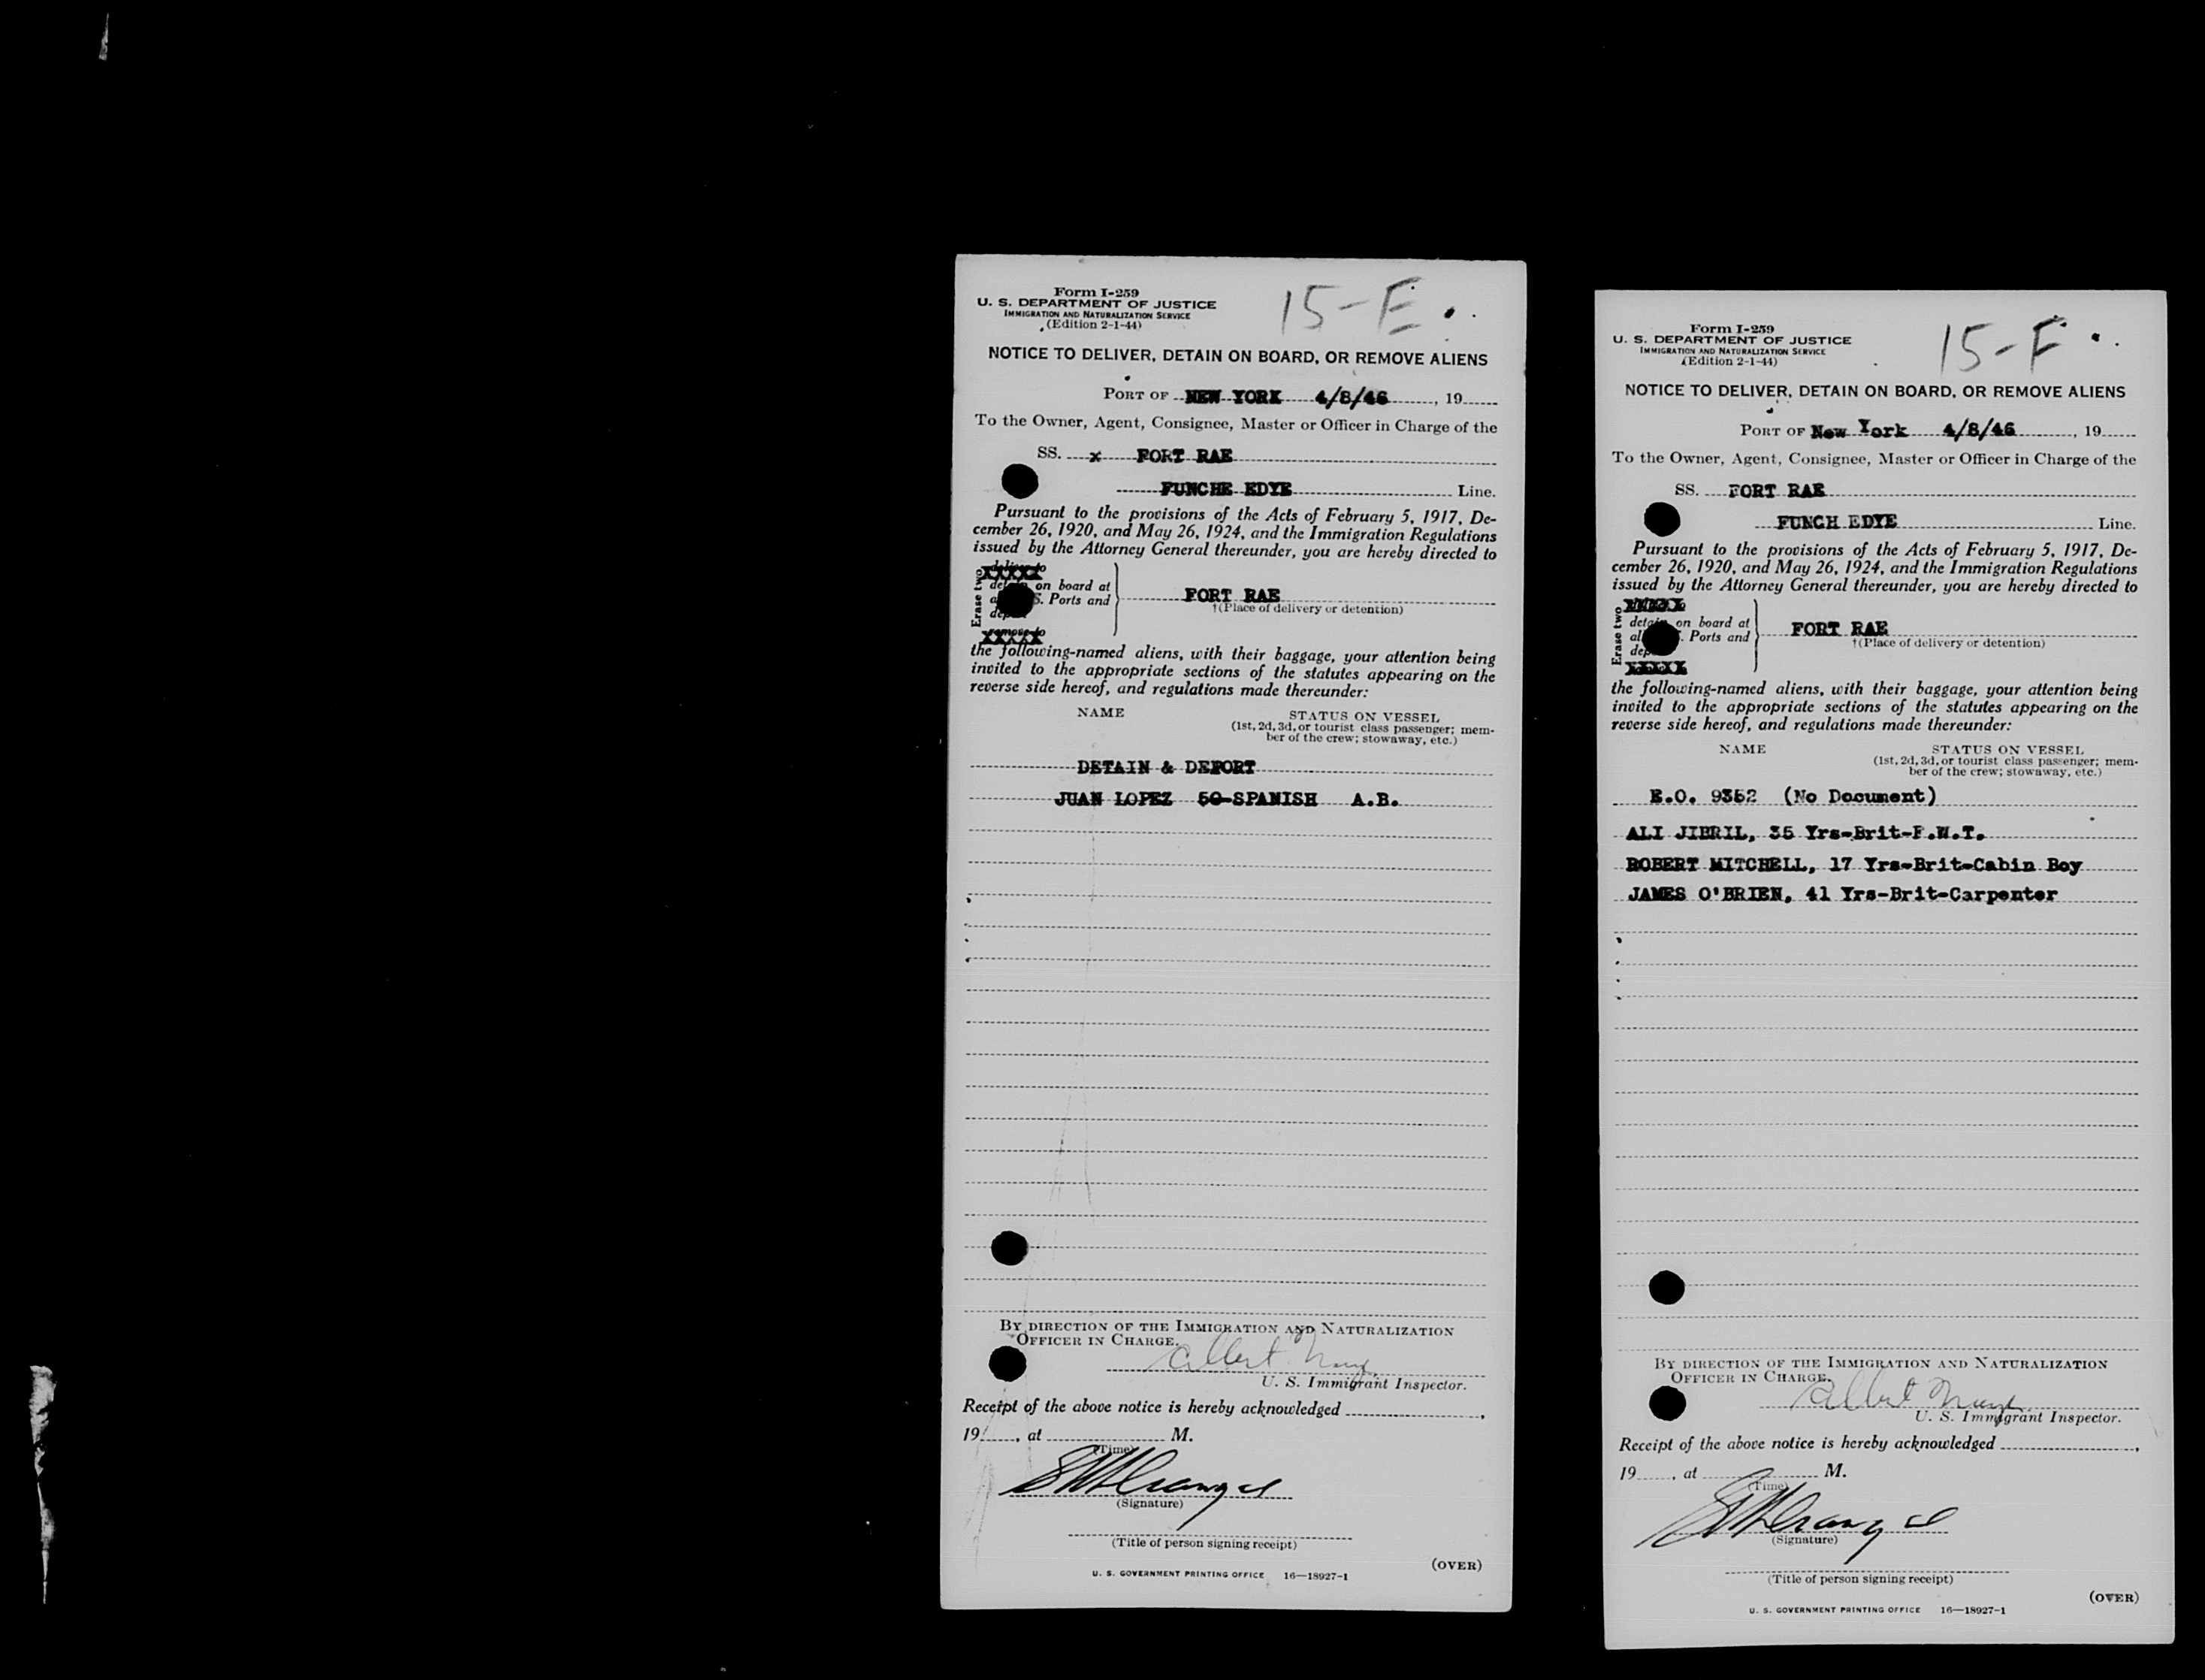 Form I-259
U. S. DEPARTMENT OF JUSTICE
IMMIGRATION AND NATURALIZATION SERVICE
(Edition 2-1-44)
15-E.
NOTICE TO DELIVER, DETAIN ON BOARD, OR REMOVE ALIENS
PORT OF NEW YORK 4/8/46, 19
To the Owner, Agent, Consignee, Master or Officer in Charge of the
SS. x FORT RAE
FUNCHE EDYE Line.
Pursuant to the provisions of the Acts of February 5, 1917, De-
cember 26, 1920, and May 26, 1924, and the Immigration Regulations
issued by the Attorney General thereunder, you are hereby directed to
Erase two
deliver to
on board at
S. Ports and
remove to
FORT RAE
†(Place of delivery or detention)
the following-named aliens, with their baggage, your attention being
invited to the appropriate sections of the statutes appearing on the
reverse side hereof, and regulations made thereunder:
NAME STATUS ON VESSEL
(1st, 2d, 3d, or tourist class passenger; mem-
ber of the crew; stowaway, etc.)
DETAIN & DEPORT
JUAN LOPEZ 50-SPANISH A.B.
BY DIRECTION OF THE IMMIGRATION AND NATURALIZATION
OFFICER IN CHARGE.
Albert
U. S. Immigrant Inspector.
Receipt of the above notice is hereby acknowledged ,
19 , at M.
(Time)
(Signature)
(Title of person signing receipt)
(OVER)
U. S. GOVERNMENT PRINTING OFFICE 16—18927-1
Form I-259
U. S. DEPARTMENT OF JUSTICE
IMMIGRATION AND NATURALIZATION SERVICE
(Edition 2-1-44)
15-F.
NOTICE TO DELIVER, DETAIN ON BOARD, OR REMOVE ALIENS
PORT OF New York 4/8/46, 19
To the Owner, Agent, Consignee, Master or Officer in Charge of the
SS. FORT RAE
FUNCH EDYE Line.
Pursuant to the provisions of the Acts of February 5, 1917, De-
cember 26, 1920, and May 26, 1924, and the Immigration Regulations
issued by the Attorney General thereunder, you are hereby directed to
Erase two
on board at
Ports and
FORT RAE
†(Place of delivery or detention)
the following-named aliens, with their baggage, your attention being
invited to the appropriate sections of the statutes appearing on the
reverse side hereof, and regulations made thereunder:
NAME STATUS ON VESSEL
(1st, 2d, 3d, or tourist class passenger; mem-
ber of the crew; stowaway, etc.)
E.O. 9352 (No Document)
ALI JIBRIL, 35 Yrs-Brit-F.W.T.
ROBERT MITCHELL, 17 Yrs-Brit-Cabin Boy
JAMES O'BRIEN, 41 Yrs-Brit-Carpenter
BY DIRECTION OF THE IMMIGRATION AND NATURALIZATION
OFFICER IN CHARGE.
Albert
U. S. Immigrant Inspector.
Receipt of the above notice is hereby acknowledged ,
19 , at M.
(Time)
(Signature)
(Title of person signing receipt)
(OVER)
U. S. GOVERNMENT PRINTING OFFICE 16—18927-1